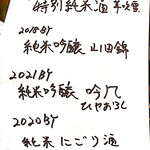 特別純米酒
2018BY
純米吟醸 山田錦
2021BY
純米吟醸 吟风
ひやおろし
2020BY
純米 にごり酒